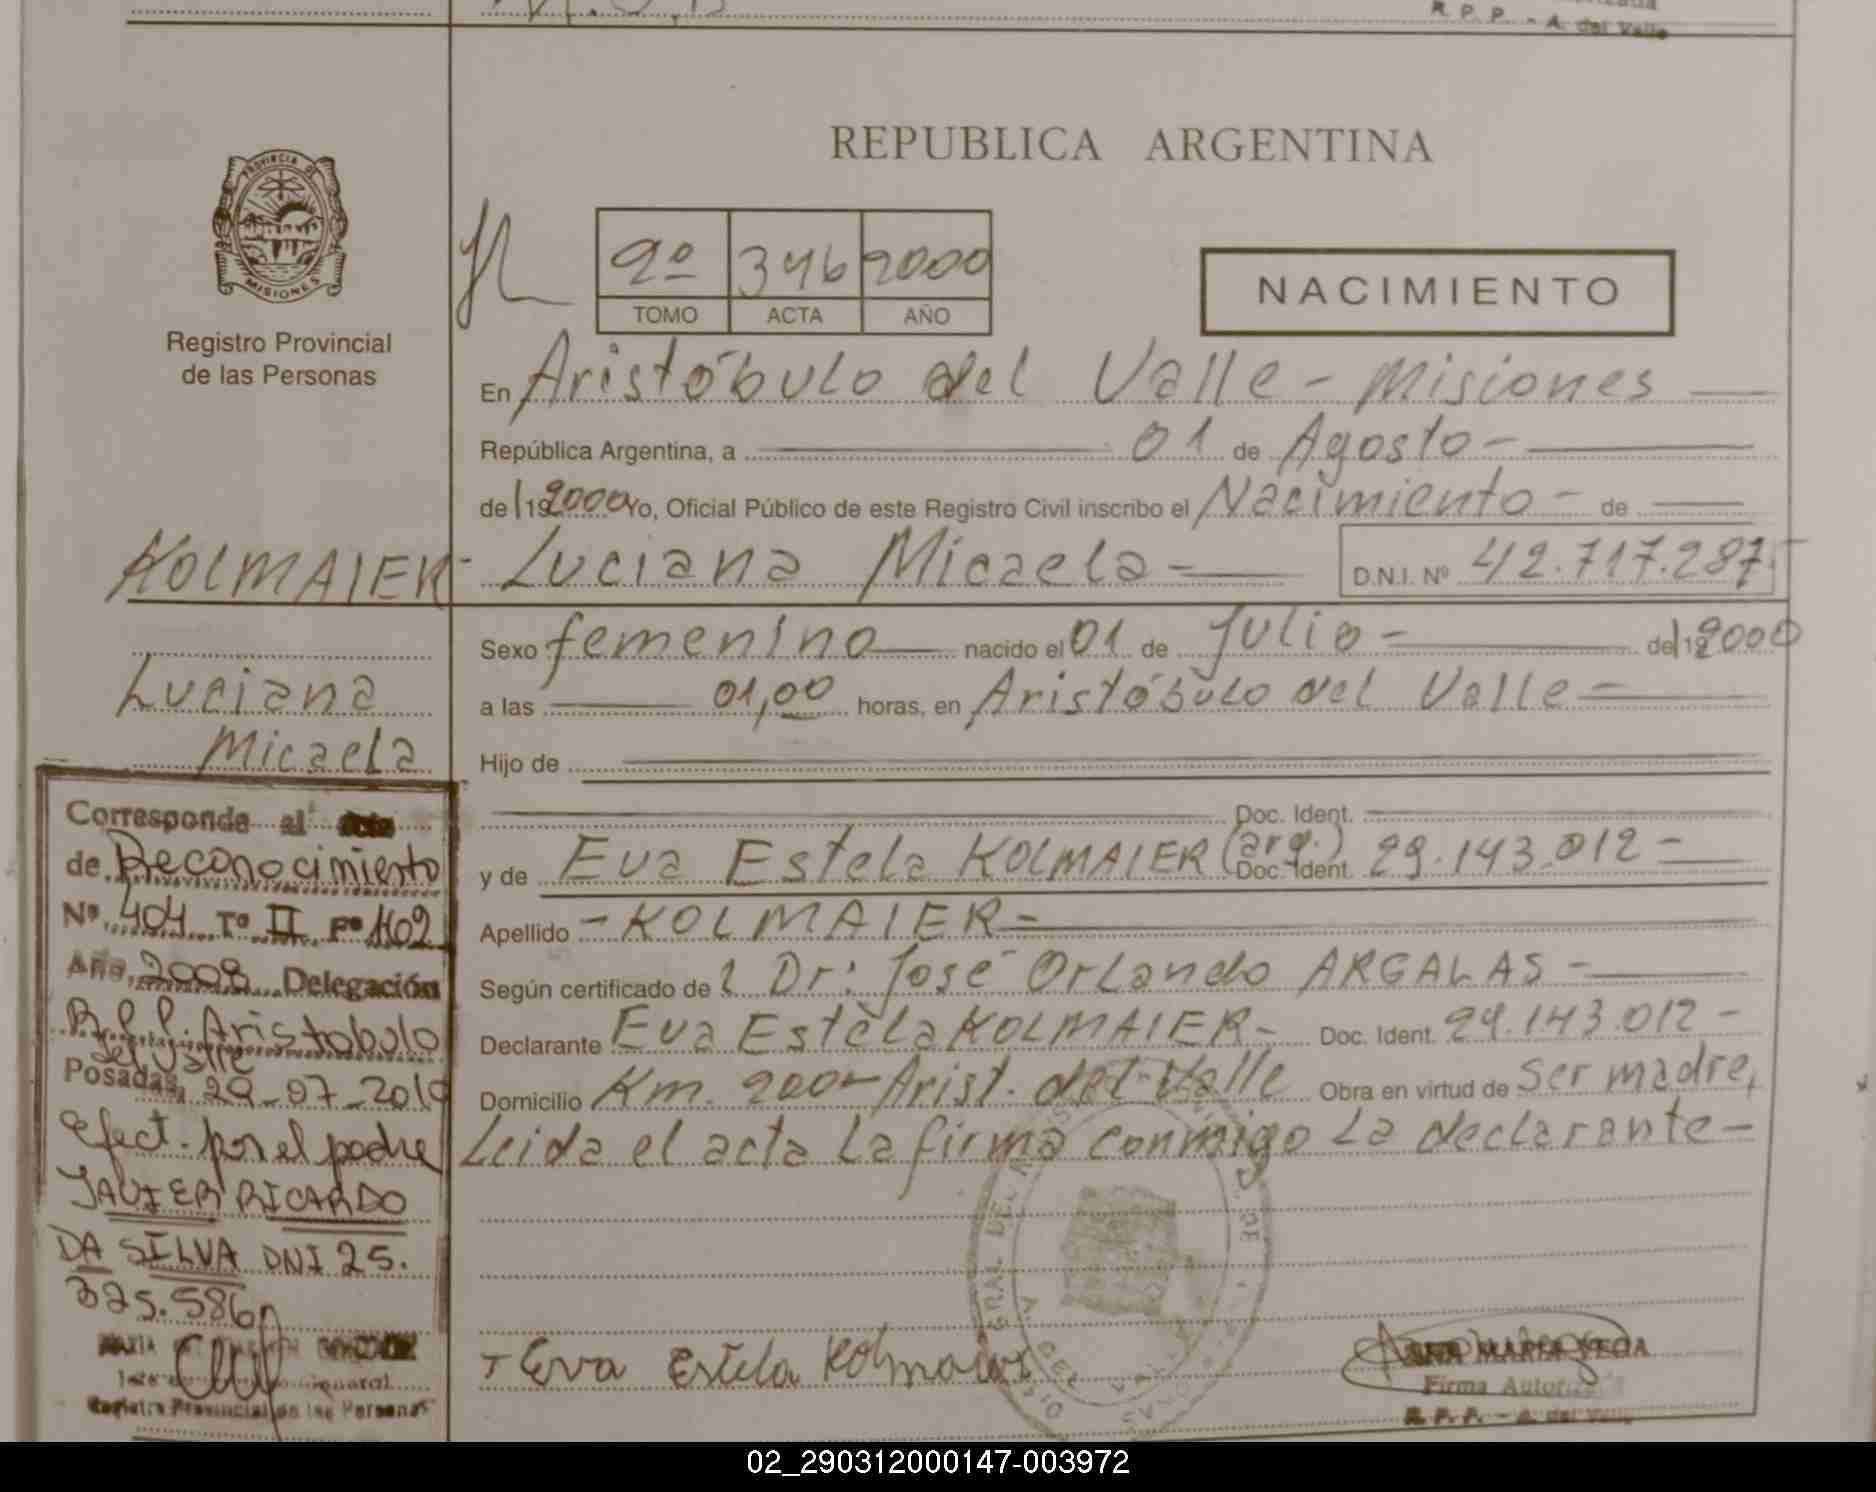 R. P. P. - A. del Valle
REPUBLICA ARGENTINA
PROVINCIA DE
MISIONES
Registro Provincial
de las Personas
2º 346 2000
TOMO ACTA AÑO
NACIMIENTO
En Aristóbulo del Valle - Misiones
República Argentina, a 01 de Agosto -
de 19 2000 Yo, Oficial Público de este Registro Civil inscribo el Nacimiento - de
KOLMAIER - Luciana Micaela - D.N.I. Nº 42.717.287
Sexo femenino nacido el 01 de Julio - de 19 2000
a las 01,00 horas, en Aristóbulo del Valle -
Hijo de
Doc. Ident.
y de Eva Estela KOLMAIER (arg.) Doc. Ident. 29.143.012 -
Apellido - KOLMAIER -
Según certificado de l Dr: José Orlando ARGALAS -
Declarante Eva Estela KOLMAIER - Doc. Ident. 29.143.012 -
Domicilio Km. 200 - Arist. del Valle Obra en virtud de ser madre,
Leida el acta la firma conmigo la declarante -
Luciana
Micaela
Corresponde al
de Reconocimiento
Nº 404 Tº II Fº 1102
Año 2008 Delegación
R.P.P. Aristobulo
del Valle
Posadas, 29-07-2010
efect. por el padre
JAVIER RICARDO
DA SILVA DNI 25.
325.586
Registro Provincial de las Personas
Eva Estela Kolmaier
ANA MARIA
Firma Autorizada
R. P. P. - A. del Valle
02_290312000147-003972